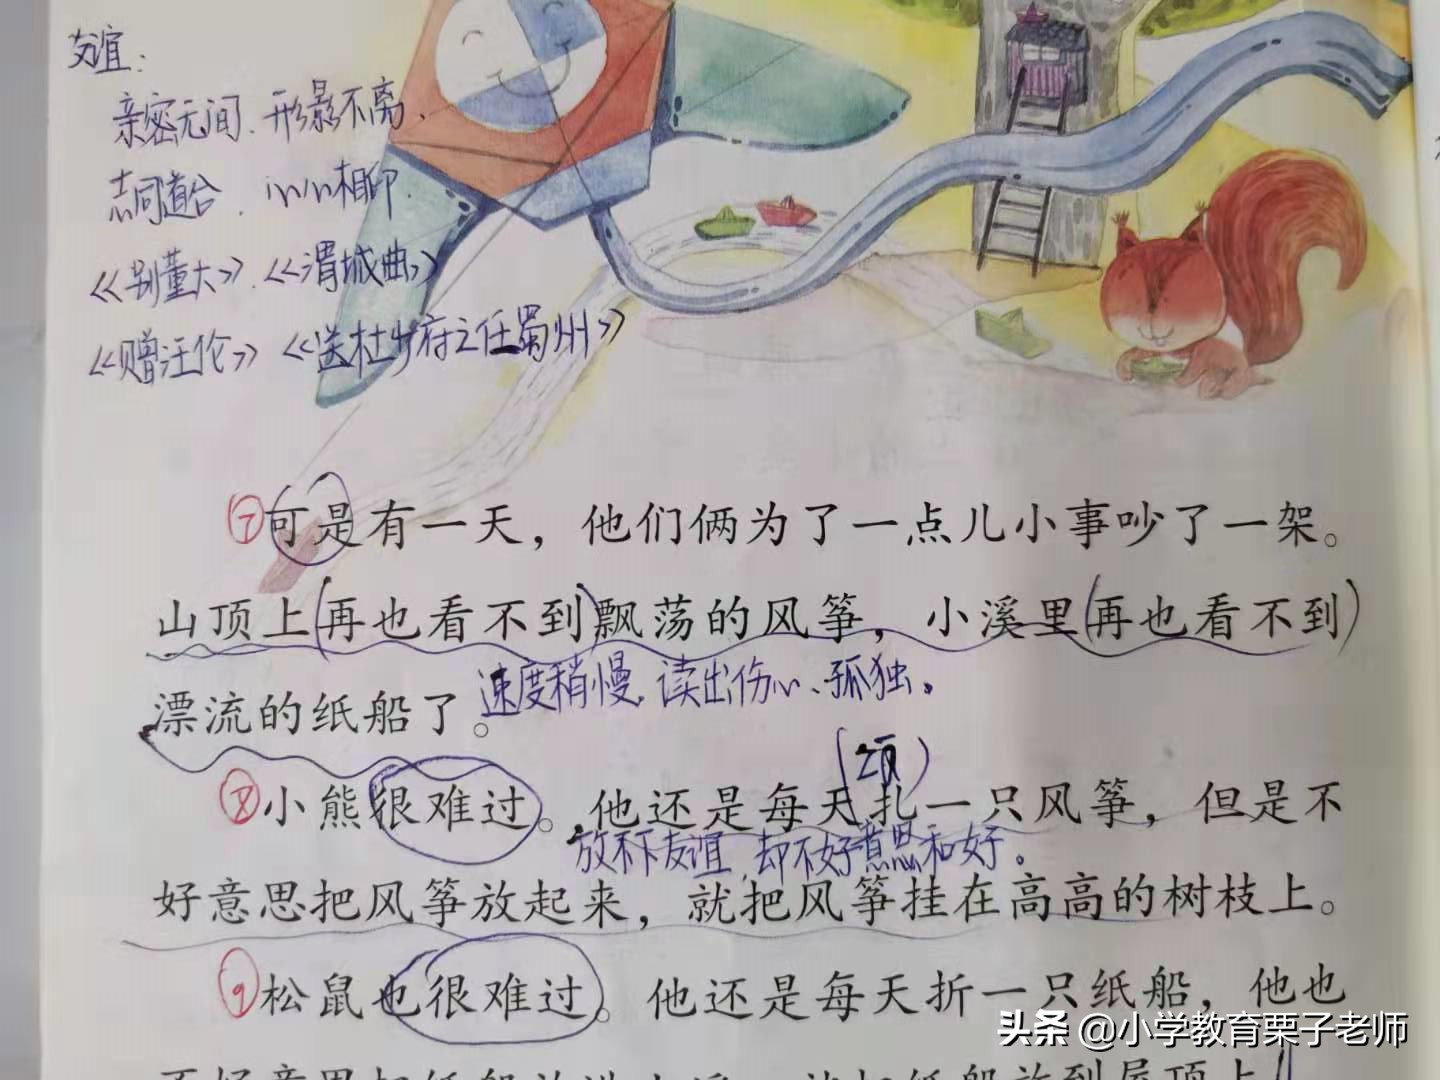 友谊：
亲密无间、形影不离、
志同道合、心心相印.
《别董大》《渭城曲》
《赠汪伦》《送杜少府之任蜀州》
⑦可是有一天，他们俩为了一点儿小事吵了一架。
山顶上(再也看不到)飘荡的风筝，小溪里(再也看不到)
漂流的纸船了。速度稍慢，读出伤心、孤独。
⑧小熊很难过。他还是每天扎一只风筝，但是不
放不下友谊，却不好意思和好。
好意思把风筝放起来，就把风筝挂在高高的树枝上。
⑨松鼠也很难过。他还是每天折一只纸船，他也
头条 @小学教育栗子老师